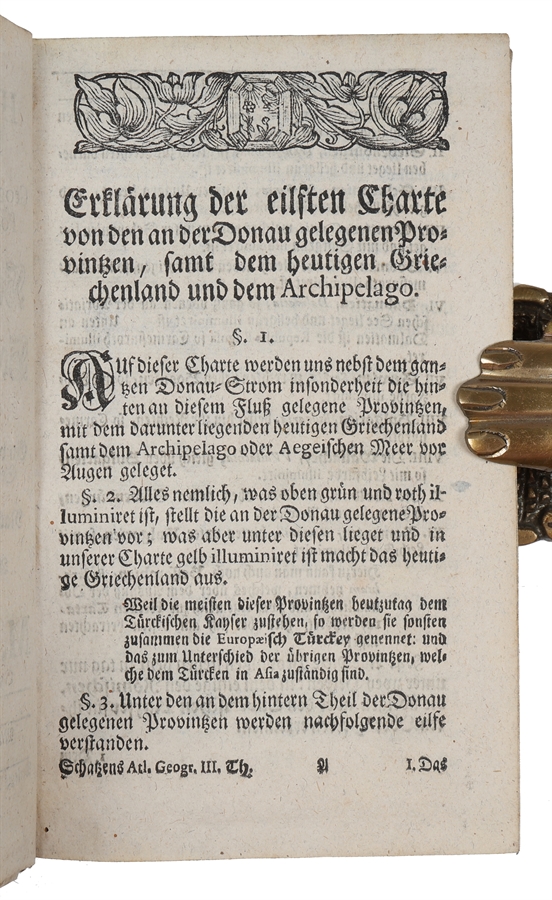 Erklärung der eilften Charte
von den an der Donau gelegenen Pro-
vintzen, samt dem heutigen Grie-
chenland und dem Archipelago.
§. 1.
AUf dieser Charte werden uns nebst dem gan-
tzen Donau-Strom insonderheit die hin-
ten an diesem Fluß gelegene Provintzen,
mit dem darunter liegenden heutigen Griechenland
samt dem Archipelago oder Aegeischen Meer vor
Augen geleget.
§. 2. Alles nemlich, was oben grün und roth il-
luminiret ist, stellt die an der Donau gelegene Pro-
vintzen vor; was aber unter diesen lieget und in
unserer Charte gelb illuminiret ist macht das heuti-
ge Griechenland aus.
Weil die meisten dieser Provintzen heutzutag dem
Türckischen Kayser zustehen, so werden sie sonsten
zusammen die Europæisch Türckey genennet: und
das zum Unterschied der übrigen Provintzen, wel-
che dem Türcken in Asia zuständig sind.
§. 3. Unter den an dem hintern Theil der Donau
gelegenen Provintzen werden nachfolgende eilfe
verstanden.
Schatzens Atl. Geogr. III. Th. A 1. Das